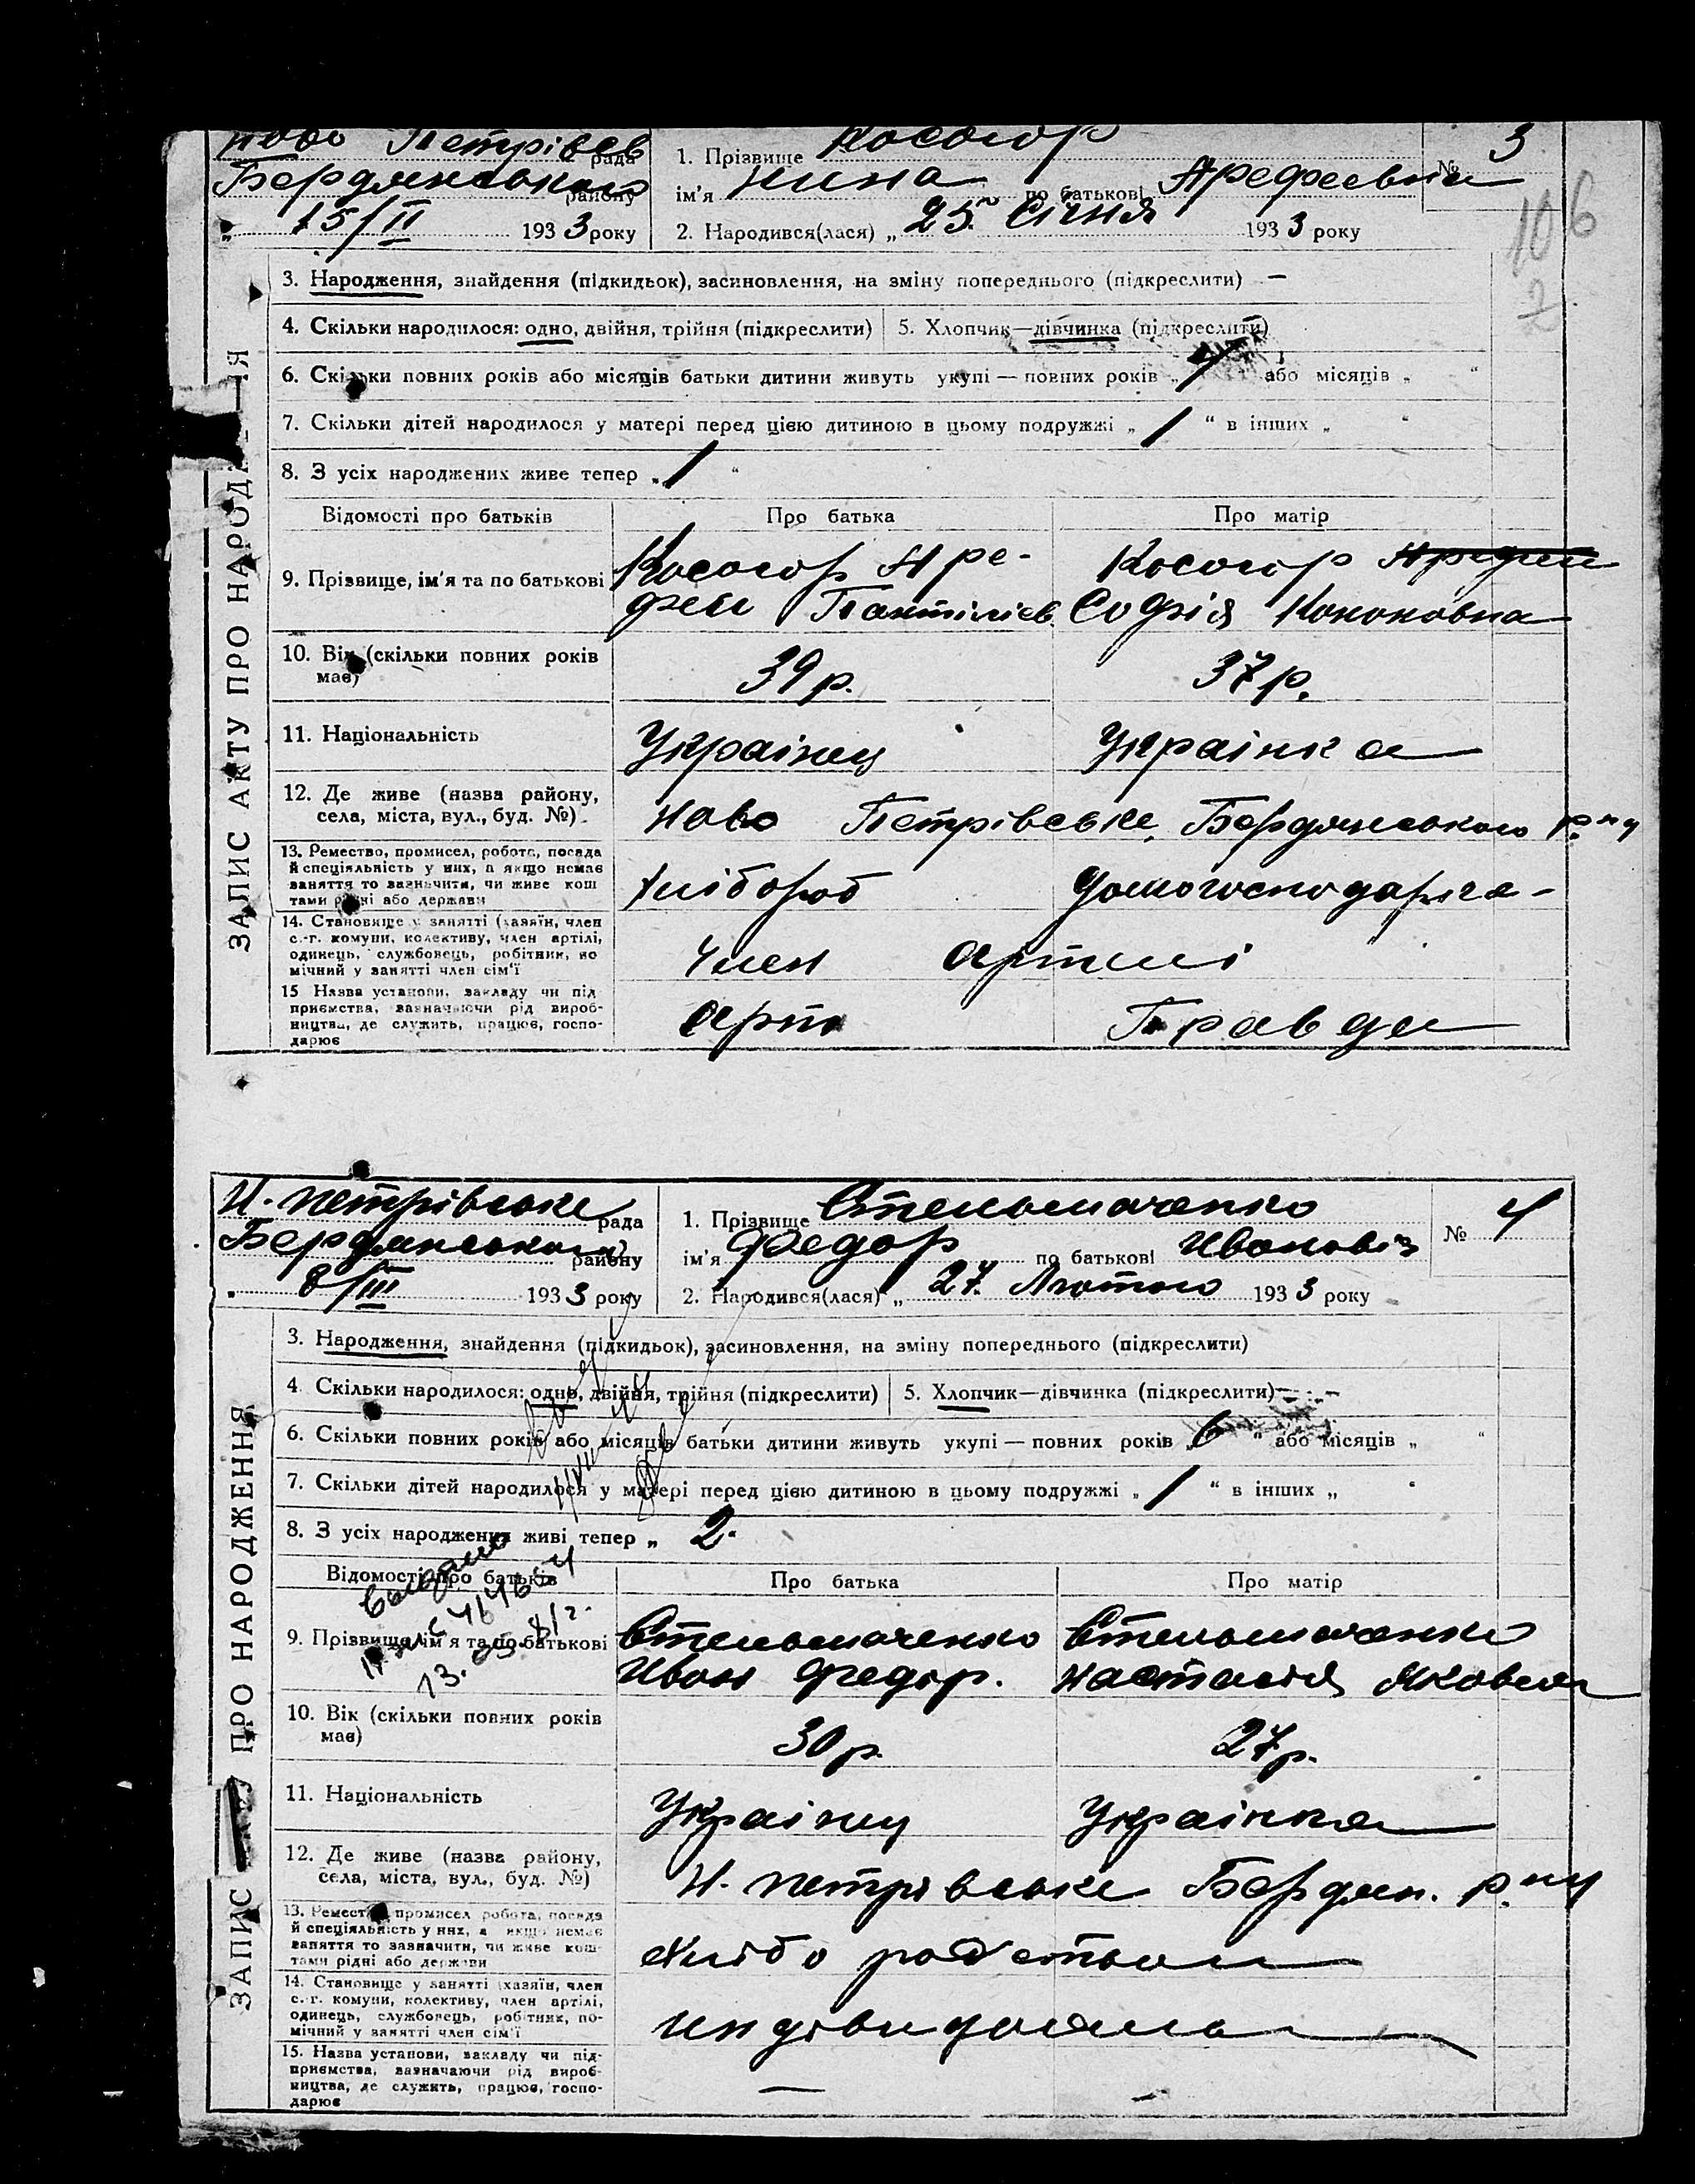 Ново Петрівсь рада
Бердянського району
„ 15/II 1933 року
1. Прізвище Косогор
ім'я Нина по батькові Арефеевна
№ 3
2. Народився(лася) „ 25 Січня 1933 року
106
2
3. Народження, знайдення (підкидьок), засиновлення, на зміну попереднього (підкреслити) —
4. Скільки народилося: одно, двійня, трійня (підкреслити) 5. Хлопчик—дівчинка (підкреслити)
6. Скільки повних років або місяців батьки дитини живуть укупі — повних років „ “ або місяців „ “
7. Скільки дітей народилося у матері перед цією дитиною в цьому подружжі „ 1 “ в інших „ “
8. З усіх народжених живе тепер „ 1 “
Відомості про батьків Про батька Про матір
9. Прізвище, ім'я та по батькові
Косогор Аре-
фей Пантілієв
Косогор
Софія Кононовна
10. Вік (скільки повних років має)
39 р. 37 р.
11. Національність
Українец Українка
12. Де живе (назва району,
села, міста, вул., буд. №)
Ново Петрівське, Бердянського р-ну
13. Ремество, промисел, робота, посада
й спеціяльність у них, а якщо немає
заняття то зазначити, чи живе кош
тами рідні або держави
Хлібороб Домогосподарка -
14. Становище у занятті (хазяїн, член
с.-г. комуни, колективу, член артілі,
одинець, службовець, робітник, по
мічний у занятті член сім'ї
Член артілі
15 Назва установи, закладу чи під
приємства, зазначаючи рід вироб-
ництва, де служить, працює, госпо-
дарює
арт Правда
ЗАПИС АКТУ ПРО НАРОДЖЕННЯ
Н. Петрівське рада
Бердянського району
8/III 1933 року
1. Прізвище Стельмаченко
ім'я Федор по батькові Иванович
№ 4
2. Народився(лася) „ 27. Лютого 1933 року
3. Народження, знайдення (підкидьок), засиновлення, на зміну попереднього (підкреслити)
4 Скільки народилося: одно, двійня, трійня (підкреслити) 5. Хлопчик—дівчинка (підкреслити)
6. Скільки повних років або місяців батьки дитини живуть укупі — повних років „ 6 “ або місяців „ “
7. Скільки дітей народилося у матері перед цією дитиною в цьому подружжі „ 1 “ в інших „ “
8. З усіх народжених живі тепер „ 2.
Відомості про батьків Про батька Про матір
выдано
9. Прізвище, ім'я та по батькові
Стельмаченко
Иван Федор.
Стельмаченко
Настасія Яковел
10. Вік (скільки повних років
має)
30 р. 27 р.
11. Національність
Українец Українка
12. Де живе (назва району,
села, міста, вул., буд. №)
Н. Петрівське Бердян. р-ну
13. Ремество, промисел робота, посада
й спеціяльність у них, а якщо немає
заняття то зазначити, чи живе кош-
тами рідні або держави
Хліборобством
14. Становище у занятті (хазяїн, член
с.-г. комуни, колективу, член артілі,
одинець, службовець, робітник, по-
мічний у занятті член сім'ї
Индівидуаль
15. Назва установи, закладу чи під-
приємства, зазначаючи рід вироб-
ництва, де служить, працює, госпо-
дарює
— —
ЗАПИС АКТУ ПРО НАРОДЖЕННЯ